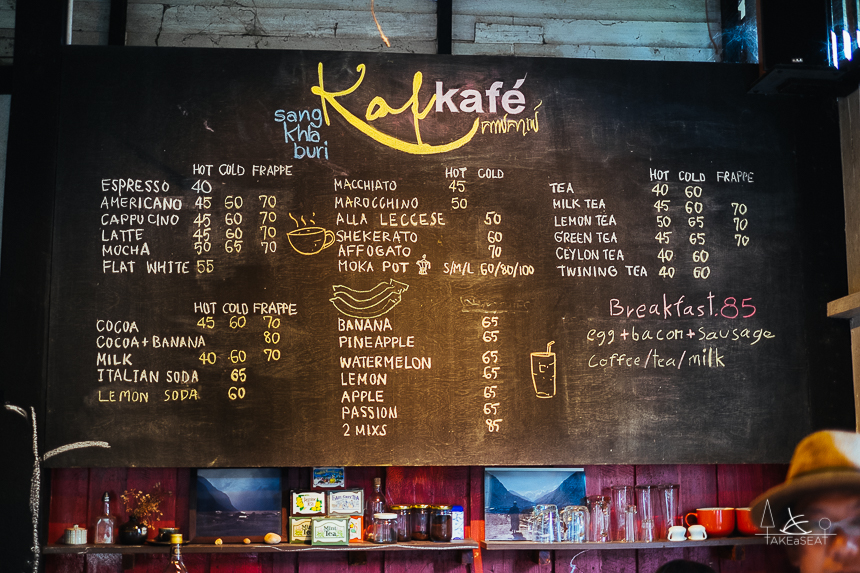 Kaf kafé
sang
khla
buri
HOT COLD FRAPPE
ESPRESSO 40
AMERICANO 45 60 70
CAPPUCINO 45 60 70
LATTE 45 60 70
MOCHA 50 65 70
FLAT WHITE 55
HOT COLD FRAPPE
COCOA 45 60 70
COCOA + BANANA 80
MILK 40 60 70
ITALIAN SODA 65
LEMON SODA 60
HOT COLD
MACCHIATO 45
MAROCCHINO 50
ALLA LECCESE 50
SHEKERATO 60
AFFOGATO 70
MOKA POT S/M/L 60/80/100
BANANA 65
PINEAPPLE 65
WATERMELON 65
LEMON 65
APPLE 65
PASSION 65
2 MIXS 85
HOT COLD FRAPPE
TEA 40 60
MILK TEA 45 60 70
LEMON TEA 50 65 70
GREEN TEA 45 65 70
CEYLON TEA 40 60
TWINING TEA 40 60
Breakfast.85
egg + bacon + Sausage
coffee/tea/milk
TAKEaSEAT